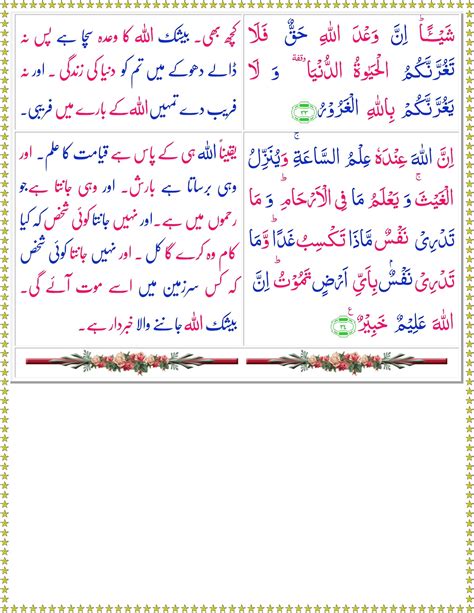 شَيْـًٔا ؕ اِنَّ وَعْدَ اللّٰهِ حَقٌّ فَلَا
تَغُرَّنَّكُمُ الْحَيٰوةُ الدُّنْيَا ۥ وقفة وَ لَا
يَغُرَّنَّكُمْ بِاللّٰهِ الْغَرُوْرُ ۝۳۳
کچھ بھی۔ بیشک اللہ کا وعدہ سچا ہے پس نہ
ڈالے دھوکے میں تم کو دنیا کی زندگی ۔ اور نہ
فریب دے تمہیں اللہ کے بارے میں فریبی۔
اِنَّ اللّٰهَ عِنْدَهٗ عِلْمُ السَّاعَةِ ۚ وَيُنَزِّلُ
الْغَيْثَ ۚ وَ يَعْلَمُ مَا فِى الْاَرْحَامِ ؕ وَ مَا
تَدْرِىْ نَفْسٌ مَّاذَا تَكْسِبُ غَدًا ؕ وَّمَا
تَدْرِىْ نَفْسٌۢ بِاَىِّ اَرْضٍ تَمُوْتُ ؕ اِنَّ
اللّٰهَ عَلِيْمٌ خَبِيْرٌ ۝۳۴ ع
یقیناً اللہ ہی کے پاس ہے قیامت کا علم۔ اور
وہی برساتا ہے بارش۔ اور وہی جانتا ہے جو
رحموں میں ہے۔ اور نہیں جانتا کوئی شخص کہ کیا
کام وہ کرے گا کل ۔ اور نہیں جانتا کوئی شخص
کہ کس سرزمین میں اسے موت آئے گی۔
بیشک اللہ جاننے والا خبردار ہے۔